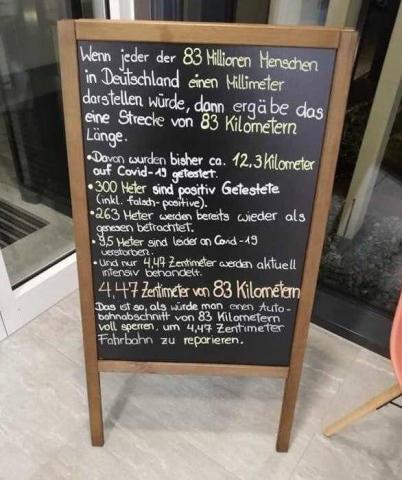 Wenn jeder der 83 Millionen Menschen
in Deutschland einen Millimeter
darstellen würde, dann ergäbe das
eine Strecke von 83 Kilometern
Länge.
• Davon wurden bisher ca. 12,3 Kilometer
auf Covid-19 getestet.
• 300 Meter sind positiv Getestete
(inkl. falsch-positive).
• 263 Meter werden bereits wieder als
genesen betrachtet.
• 9,5 Meter sind leider an Covid-19
verstorben.
• Und nur 4,47 Zentimeter werden aktuell
intensiv behandelt.
4,47 Zentimeter von 83 Kilometern
Das ist so, als würde man einen Auto-
bahnabschnitt von 83 Kilometern
voll sperren, um 4,47 Zentimeter
Fahrbahn zu reparieren.